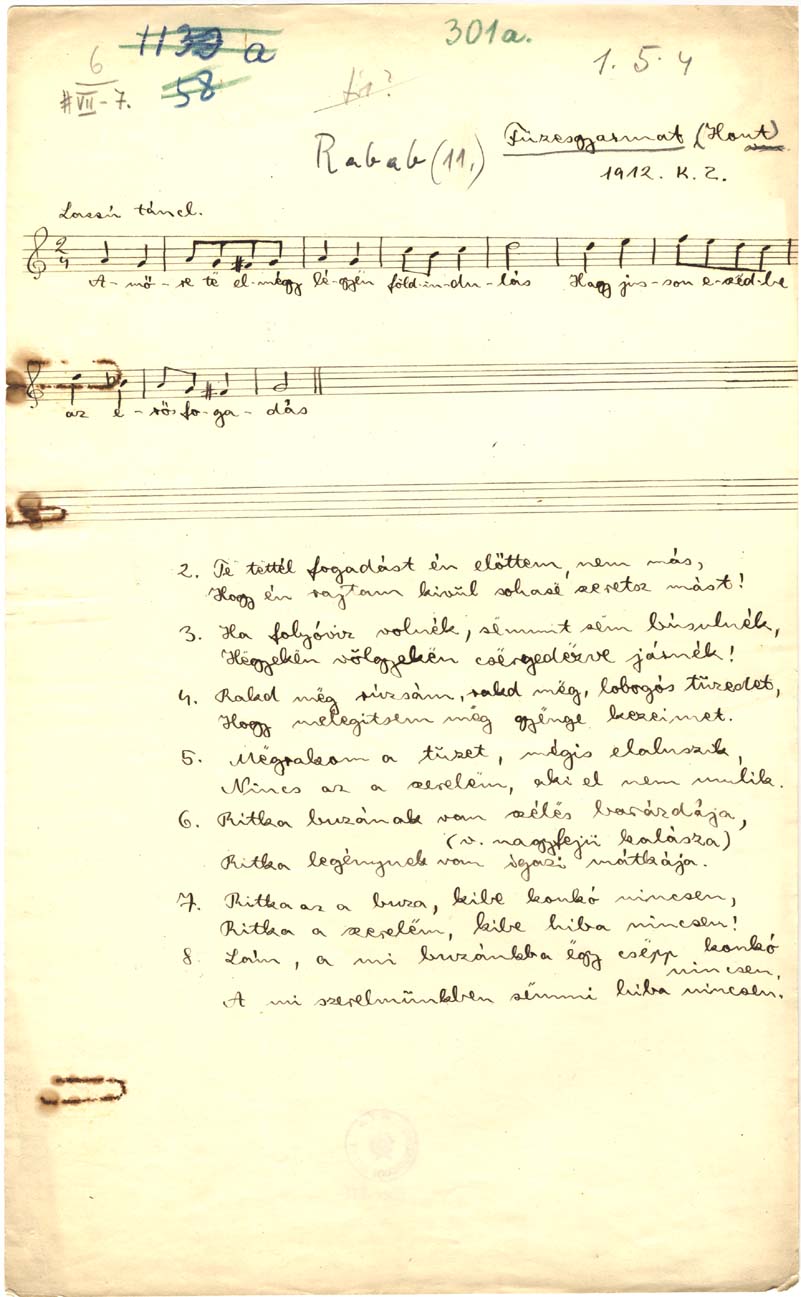 1139 a
301a.
1. 5. 4
6
#VII-7.
58
Rabab (11.)
Füzesgyarmat (Hont)
1912. K. Z.
Lassú táncl.
2
4
A-mő-re të el-mégy lé-gyën föld-in-du-lás Hagy jus-son e-szëd-be
az e-rős fo-ga-dás
2. Te tettél fogadást én előttem, nem más,
Hogy én rajtam kivül sohasë szeretsz mást!
3. Ha folyóviz volnék, sëmmit sëm búsulnék,
Hëgyekën völgyekën csërgedëzve járnék!
4. Rakd mëg rúzsám, rakd mëg, lobogós tüzedet,
Hogy melegitsem mëg gyënge kezeimet.
5. Mëgrakom a tüzet, mégis elaluszik,
Nincs az a szerelëm, aki el nem mulik.
6. Ritka buzának van szélës barázdája,
(v. nagyfejü kalásza)
Ritka legénynek van igazi mátkája.
7. Ritka az a buza, kibe konkó nincsen,
Ritka a szerelëm, kibe hiba nincsen!
8. Lám, a mi buzánkba ëgy csëpp konkó
nincsen,
A mi szerelmünkben sëmmi hiba nincsen.